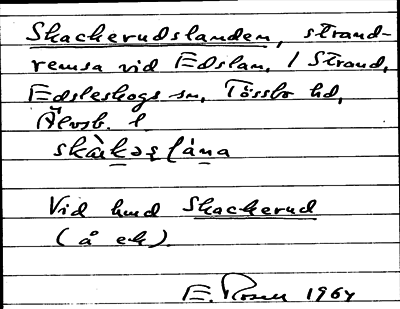 Skackerudslanden, strand-
remsa vid Edslan, / Strand,
Edsleskogs sn, Tössbo hd,
Älvsb. l.
Vid hmd Skackerud
(å ek)
E. Rosén 1964